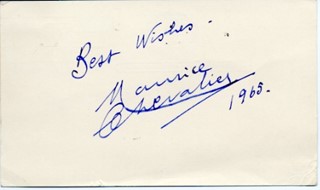 Best Wishes -
Maurice
Chevalier
1965.